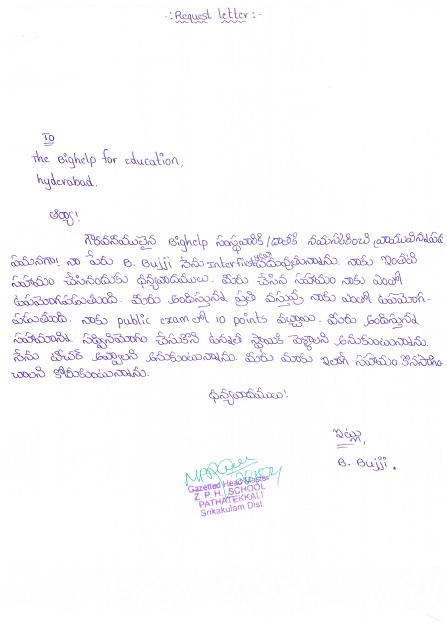 -:Request letter:-
To
The Bighelp for education,
hyderabad.
అయ్యా!
గౌరవనీయమైన Bighelp సంస్థవారికి / దాతలకి నమస్కరించి వ్రాయు
ఏమనగా! నా పేరు B. Bujji నేను Inter first చదువుతున్నాను. నాకు ఇంతటి
సహాయం చేసినందుకు ధన్యవాదములు. మీరు చేసిన సహాయం నాకు ఎంతో
ఉపయోగపడుతుంది. మీరు అందిస్తున్న ప్రతి వస్తువు నాకు ఎంతో ఉపయోగ-
పడుతుంది. నాకు public exam లో 10 points వచ్చాయి. మీరు అందిస్తున్న
సహాయాన్ని సద్వినియోగం చేసుకొని ఉన్నత స్థాయికి వెళ్లాలని అనుకుంటున్నాను.
నేను టీచర్ అవ్వాలని అనుకుంటున్నాను. మీరు మాకు ఇలాగే సహాయం కొనసాగిం-
చాలని కోరుకుంటున్నాను.
ధన్యవాదములు!
ఇట్లు,
B. Bujji.
Gazetted Head Master
Z. P. H. SCHOOL
PATHATEKKALI
Srikakulam Dist.